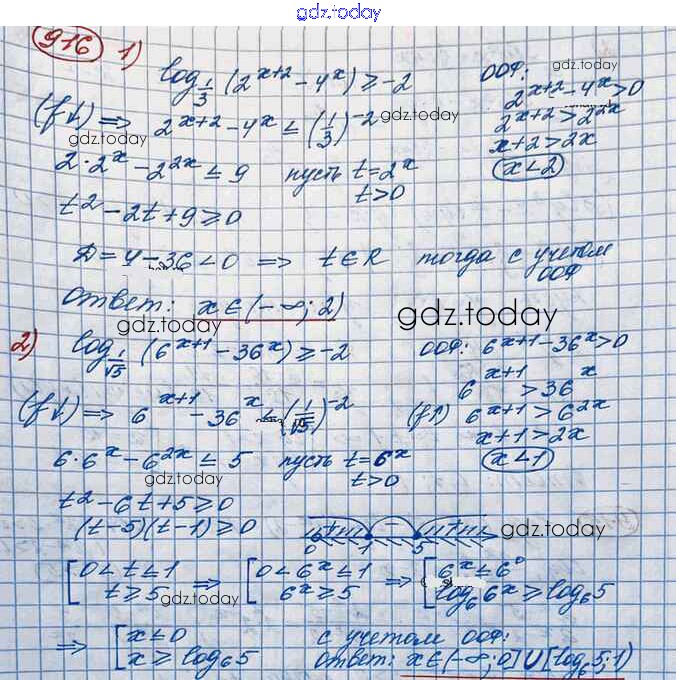 gdz.today
916 1) log_{1/3} (2^{x+2} - 4^x) ≥ -2 ООФ: gdz.today
2^{x+2} - 4^x > 0
(f↓) ⇒ 2^{x+2} - 4^x ≤ (1/3)^{-2} gdz.today 2^{x+2} > 2^{2x}
gdz.today x+2 > 2x
2·2^x - 2^{2x} ≤ 9 пусть t = 2^x x < 2
t > 0
t^2 - 2t + 9 ≥ 0
D = 4 - 36 < 0 ⇒ t ∈ R тогда с учетом ООФ
Ответ: x ∈ (-∞; 2)
gdz.today gdz.today
2) log_{1/√5} (6^{x+1} - 36^x) ≥ -2 ООФ: 6^{x+1} - 36^x > 0
6^{x+1} > 36^x
(f↓) ⇒ 6^{x+1} - 36^x ≤ (1/√5)^{-2} (f↑) 6^{x+1} > 6^{2x}
x+1 > 2x
6·6^x - 6^{2x} ≤ 5 пусть t = 6^x x < 1
gdz.today t > 0
t^2 - 6t + 5 ≥ 0
(t-5)(t-1) ≥ 0 + - + gdz.today
0 1 5
[0 < t ≤ 1 ⇒ [0 < 6^x ≤ 1 ⇒ [6^x ≤ 6^0
t ≥ 5 6^x ≥ 5 log_6 6^x ≥ log_6 5
gdz.today
⇒ [x ≤ 0 с учетом ООФ:
x ≥ log_6 5 ответ: x ∈ (-∞; 0] U [log_6 5; 1)
gdz.today